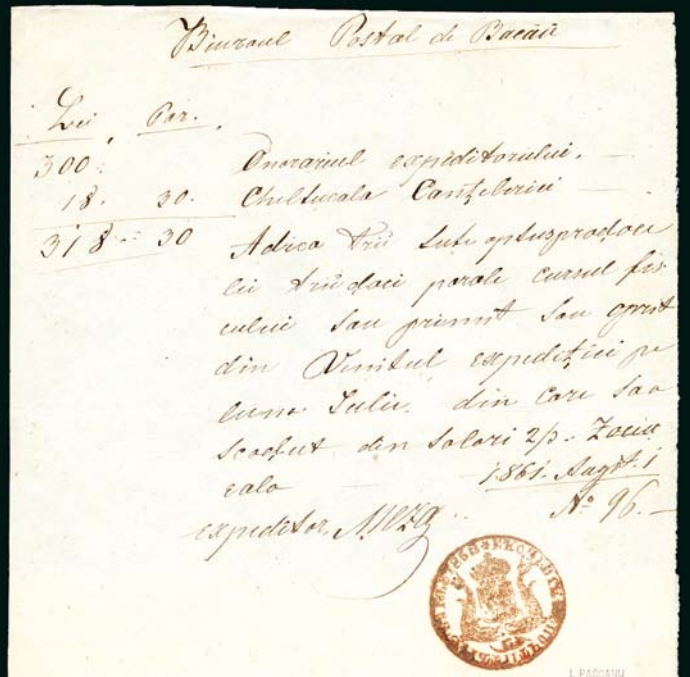 Biuroul Postal de Bacău
Lei Par.
300. Onorariul expeditorului. —
18. 30. Cheltueala Canțeleriei —
318 - 30 Adica trii sute optusprădeci
lei trii deci parale cursul fis
cului sau priimit sau oprit
din Venitul expediției pe
luna Iulie. din care sao
scadut din Salari 2/3.
eală 1861. Avgst. 1
expeditor. No 96. —
L PASCANU